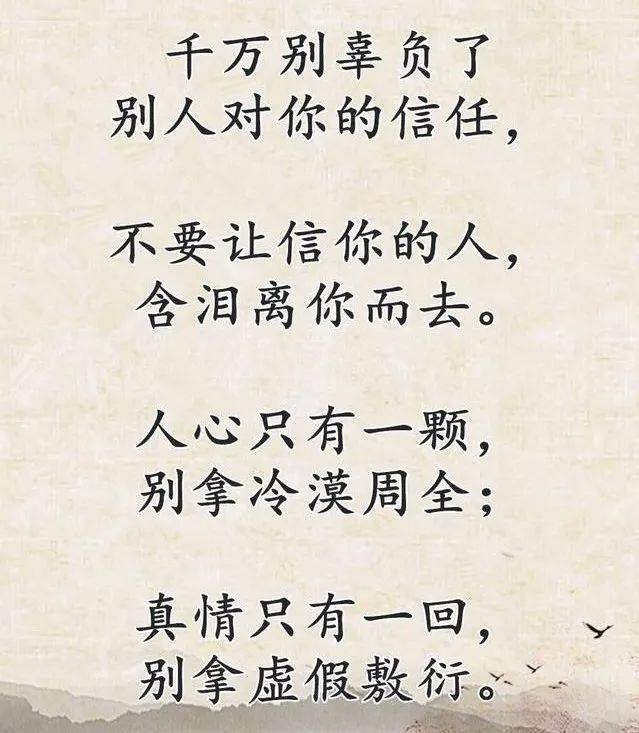 千万别辜负了
别人对你的信任，
不要让信你的人，
含泪离你而去。
人心只有一颗，
别拿冷漠周全；
真情只有一回，
别拿虚假敷衍。